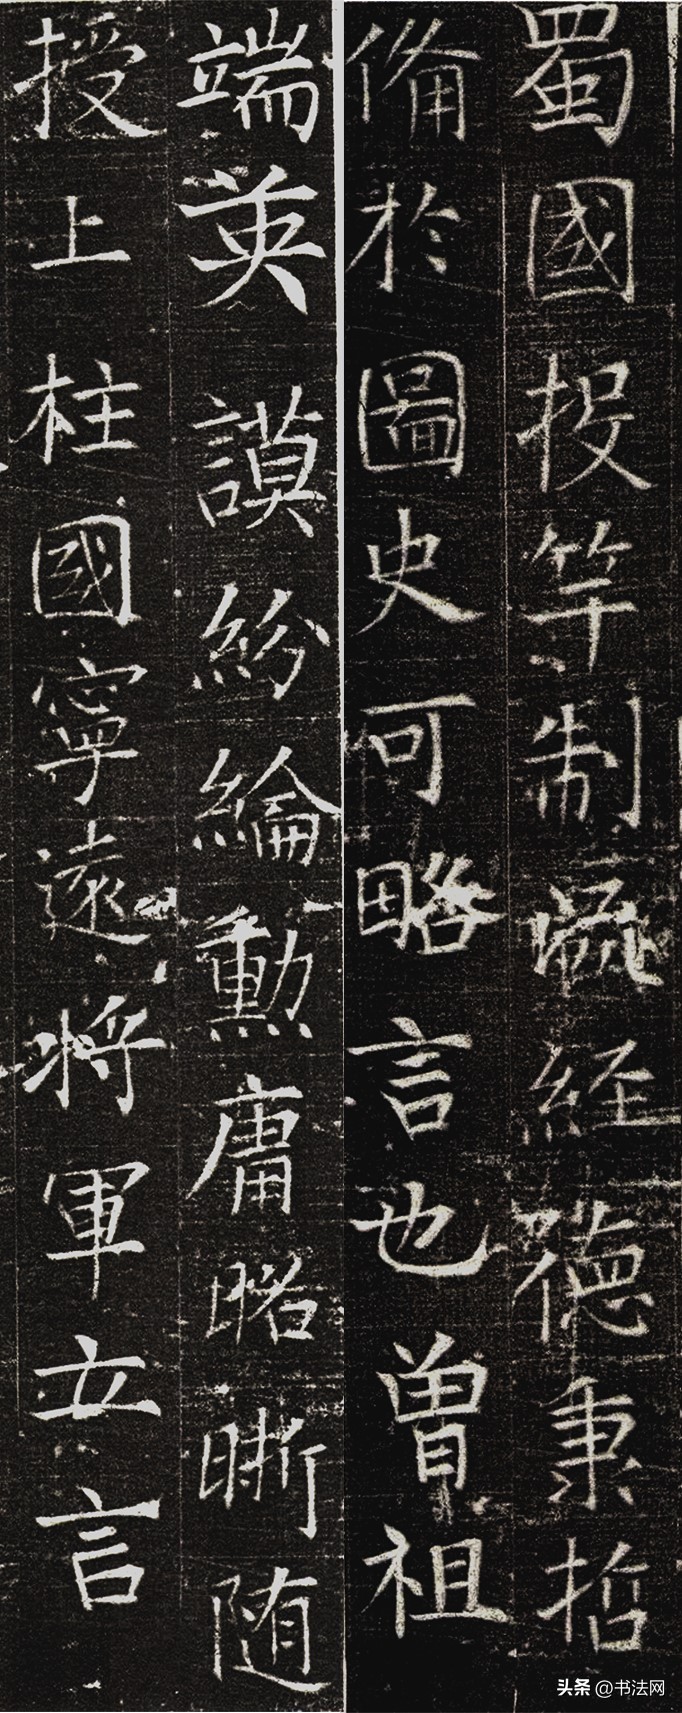 蜀國投竿制凝経德秉哲
俻於圖史可略言也曽祖
端英謨紛綸勳庸昭晣随
授上柱國寧遠將軍立言
头条 @书法网